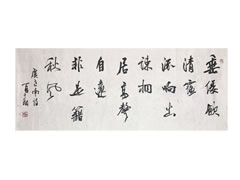 垂緌飲
清露
流响出
疎桐
居高聲
自遠
非是籍
秋風
虞世南詩